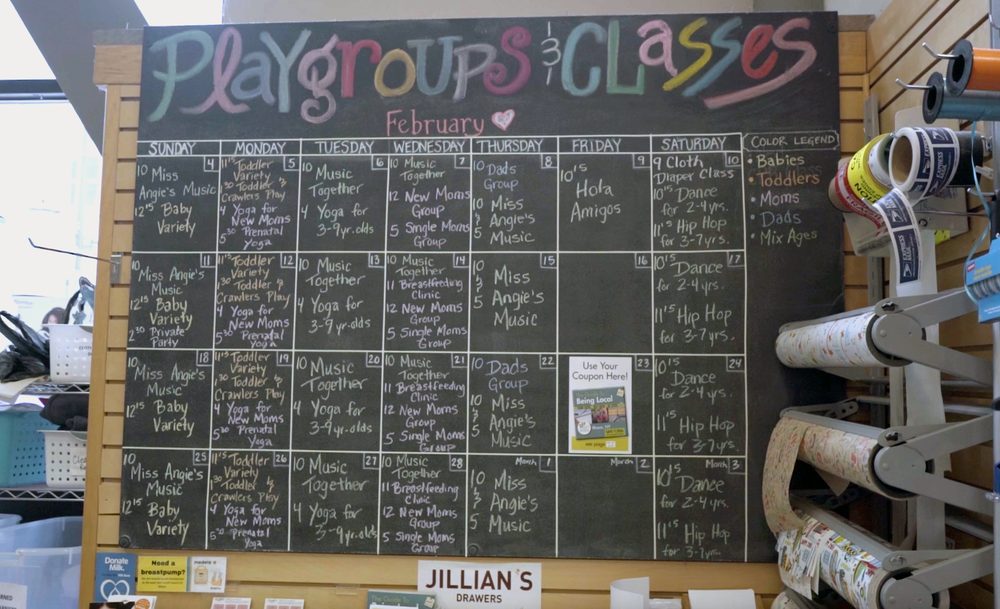 PLAYGROUPS & CLASSES
February
SUNDAY MONDAY TUESDAY WEDNESDAY THURSDAY FRIDAY SATURDAY
COLOR LEGEND
• Babies
• Toddlers
• Moms
• Dads
• Mix Ages
4
10 Miss
Angie's Music
12:15 Baby
Variety
5
11:15 Toddler
Variety
1:30 Toddler &
Crawlers Play
4 Yoga for
New Moms
5:30 Prenatal
Yoga
6
10 Music
Together
4 Yoga for
3-9yr.olds
7
10 Music
Together
12 New Moms
Group
5 Single Moms
Group
8
10 Dads
Group
10 Miss
& Angie's
5 Music
9
10:15
Hola
Amigos
10
9 Cloth
Diaper Class
10:15 Dance
for 2-4yrs.
11:15 Hip Hop
for 3-7yrs.
11
10
Miss Angie's
Music
12:15 Baby
Variety
2:30 Private
Party
12
11:15 Toddler
Variety
1:30 Toddler &
Crawlers Play
4 Yoga for
New Moms
5:30 Prenatal
Yoga
13
10 Music
Together
4 Yoga for
3-9yr.olds
14
10 Music
Together
11 Breastfeeding
Clinic
12 New Moms
Group
5 Single Moms
Group
15
10 Miss
& Angie's
5 Music
16
17
10:15 Dance
for 2-4yrs.
11:15 Hip Hop
for 3-7yrs.
18
10
Miss Angie's
Music
12:15 Baby
Variety
19
11:15 Toddler
Variety
1:30 Toddler &
Crawlers Play
4 Yoga for
New Moms
5:30 Prenatal
Yoga
20
10 Music
Together
4 Yoga for
3-9yr.olds
21
10 Music
Together
11 Breastfeeding
Clinic
12 New Moms
Group
5 Single Moms
Group
22
10 Dads
Group
10 Miss
& Angie's
5 Music
23
Use Your
Coupon Here!
Being Local
24
10:15
Dance
for 2-4yrs.
11:15 Hip Hop
for 3-7yrs.
25
10
Miss Angie's
Music
12:15 Baby
Variety
26
11:15 Toddler
Variety
1:30 Toddler &
Crawlers Play
4 Yoga for
New Moms
5:30 Prenatal
Yoga
27
10 Music
Together
4 Yoga for
3-9yr.olds
28
10 Music
Together
11 Breastfeeding
Clinic
12 New Moms
Group
5 Single Moms
Group
March 1
10 Miss
& Angie's
5 Music
March 2
March 3
10:15 Dance
for 2-4yrs.
11:15 Hip Hop
for 3-7yrs.
Donate
Milk.
Need a
breastpump?
medela
JILLIAN'S
DRAWERS